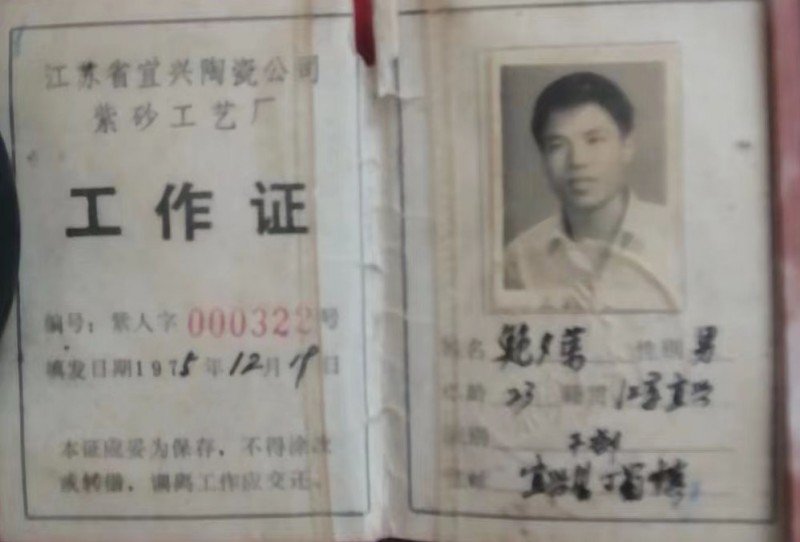 江苏省宜兴陶瓷公司
紫砂工艺厂
工作证
编号：紫人字 000322号
填发日期1975年12月19日
本证应妥为保存，不得涂改
或转借，调离工作应交还。
姓名 鲍 性别 男
年龄 23 籍贯 江苏宜兴
宜兴